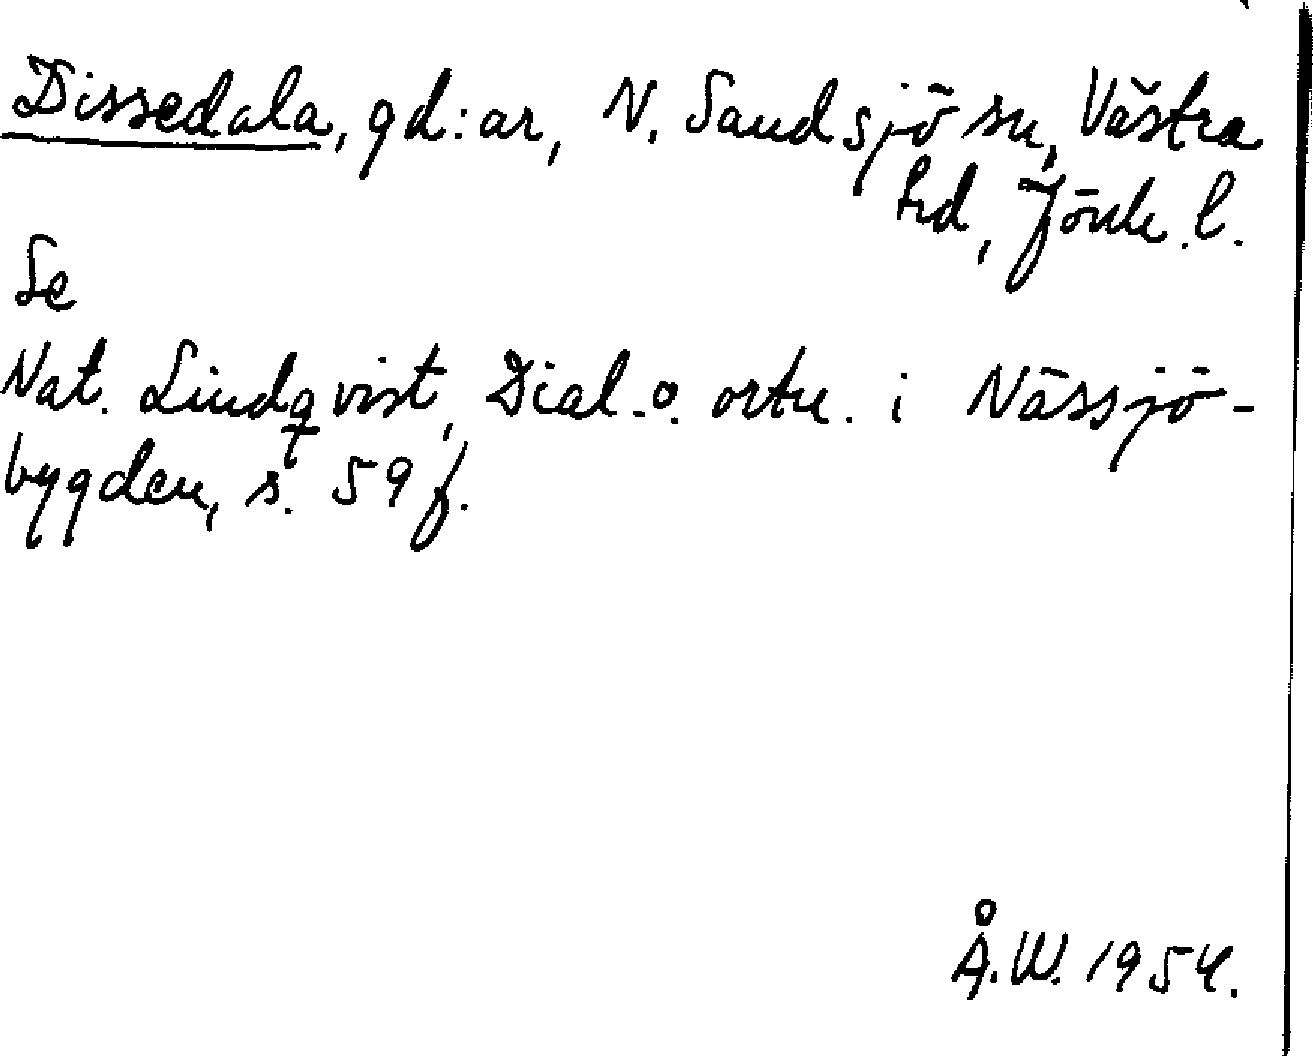 Dissedala, gd:ar, N. Sandsjö sn, Västra
hd, Jönk. l.
Se
Nat. Lindqvist, Dial. o. ortn. i Nässjö-
bygden, s. 59 f.
Å.W. 1954.